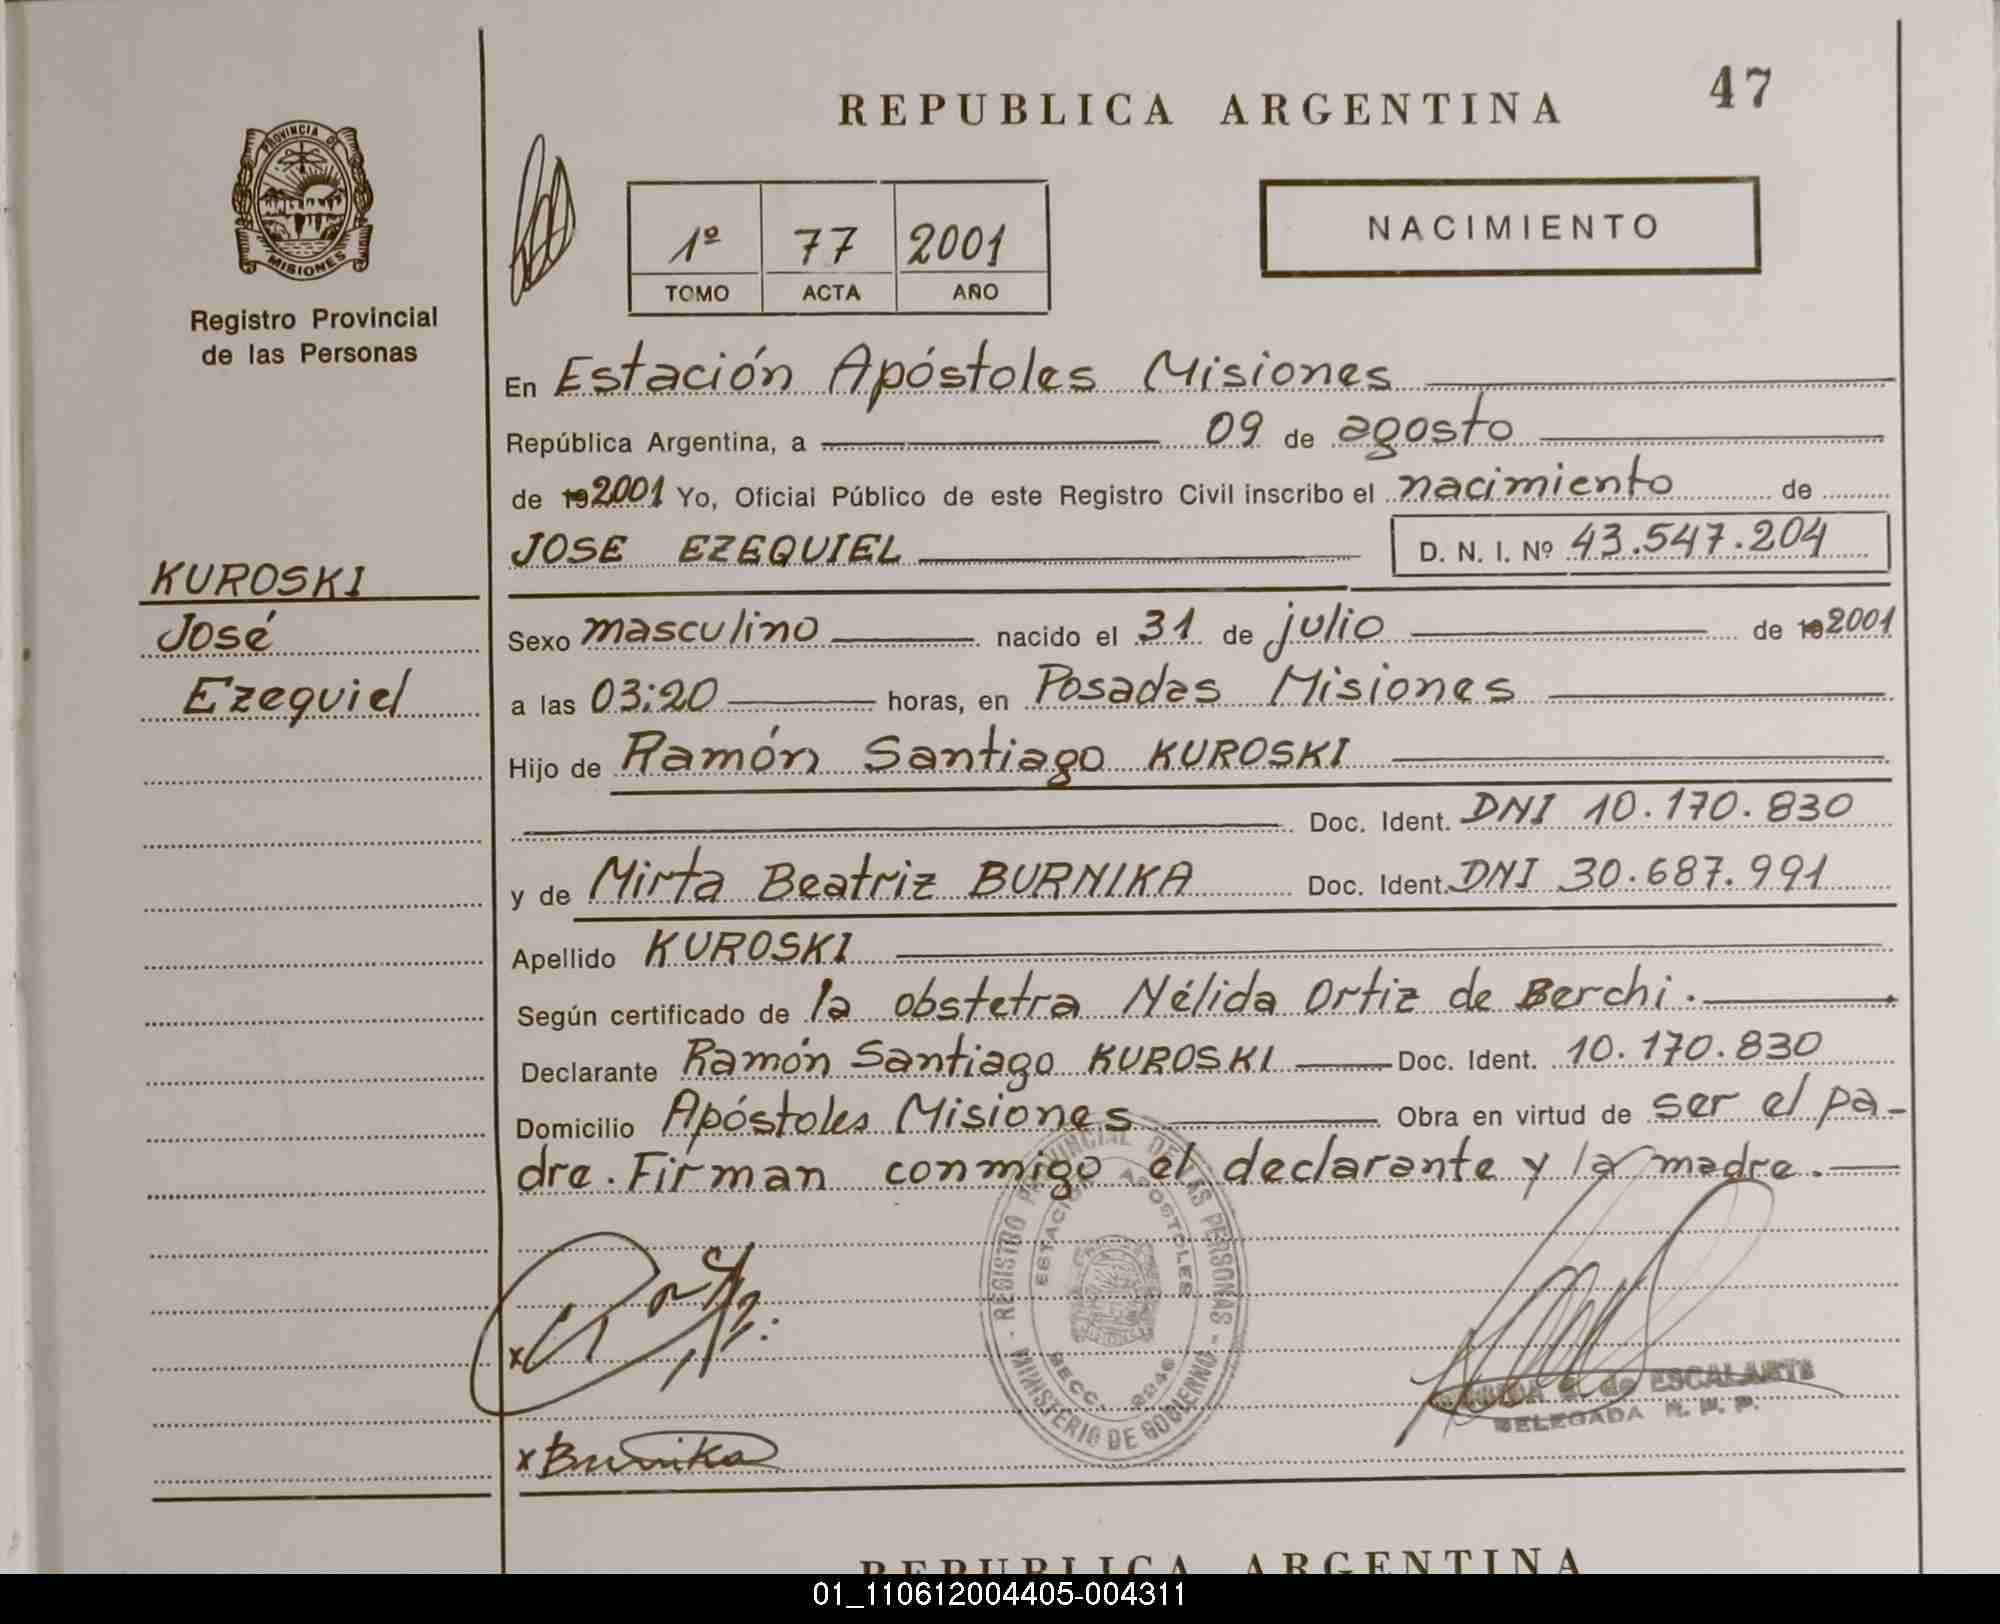 REPUBLICA ARGENTINA
47
PROVINCIA DE
MISIONES
Registro Provincial
de las Personas
1º 77 2001
TOMO ACTA AÑO
NACIMIENTO
En Estación Apóstoles Misiones
República Argentina, a 09 de agosto
de 192001 Yo, Oficial Público de este Registro Civil inscribo el nacimiento de
JOSE EZEQUIEL D. N. I. Nº 43.547.204
KUROSKI
José
Ezequiel
Sexo masculino nacido el 31 de julio de 192001
a las 03:20 horas, en Posadas Misiones
Hijo de Ramón Santiago KUROSKI
Doc. Ident. DNI 10.170.830
y de Mirta Beatriz BURNIKA Doc. Ident. DNI 30.687.991
Apellido KUROSKI
Según certificado de la obstetra Nélida Ortiz de Berchi.
Declarante Ramón Santiago KUROSKI Doc. Ident. 10.170.830
Domicilio Apóstoles Misiones Obra en virtud de ser el pa-
dre. Firman conmigo el declarante y la madre.
REGISTRO PROVINCIAL DE LAS PERSONAS
ESTACION APOSTOLES
SECC.
MINISTERIO DE GOBIERNO
de ESCALANTE
DELEGADA R. P. P.
x Burnika
REPUBLICA ARGENTINA
01_110612004405-004311